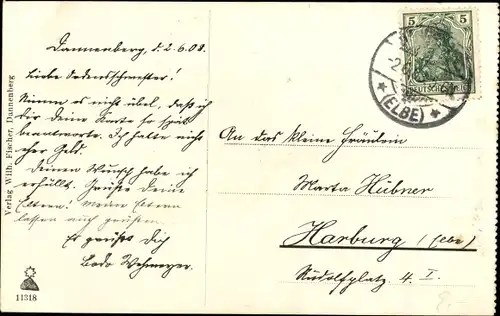 Dannenberg, d. 2.6.08.
Liebe Ordensschwester!
Nimm es nicht übel, daß ich
dir deine Karte so spät
beantworte. Ich hatte nicht
eher Geld.
Deinen Wunsch habe ich
erfüllt. Grüße Deine
Eltern! Meine Eltern
lassen auch grüßen.
Es grüßt Dich
Bodo Wehmeyer.
Verlag Wilh. Fischer, Dannenberg
11318
5 5
DEUTSCHES REICH
(ELBE)
An das kleine Fräulein
Marta Hübner
Harburg / (Elbe)
Rudolfplatz 4. I.